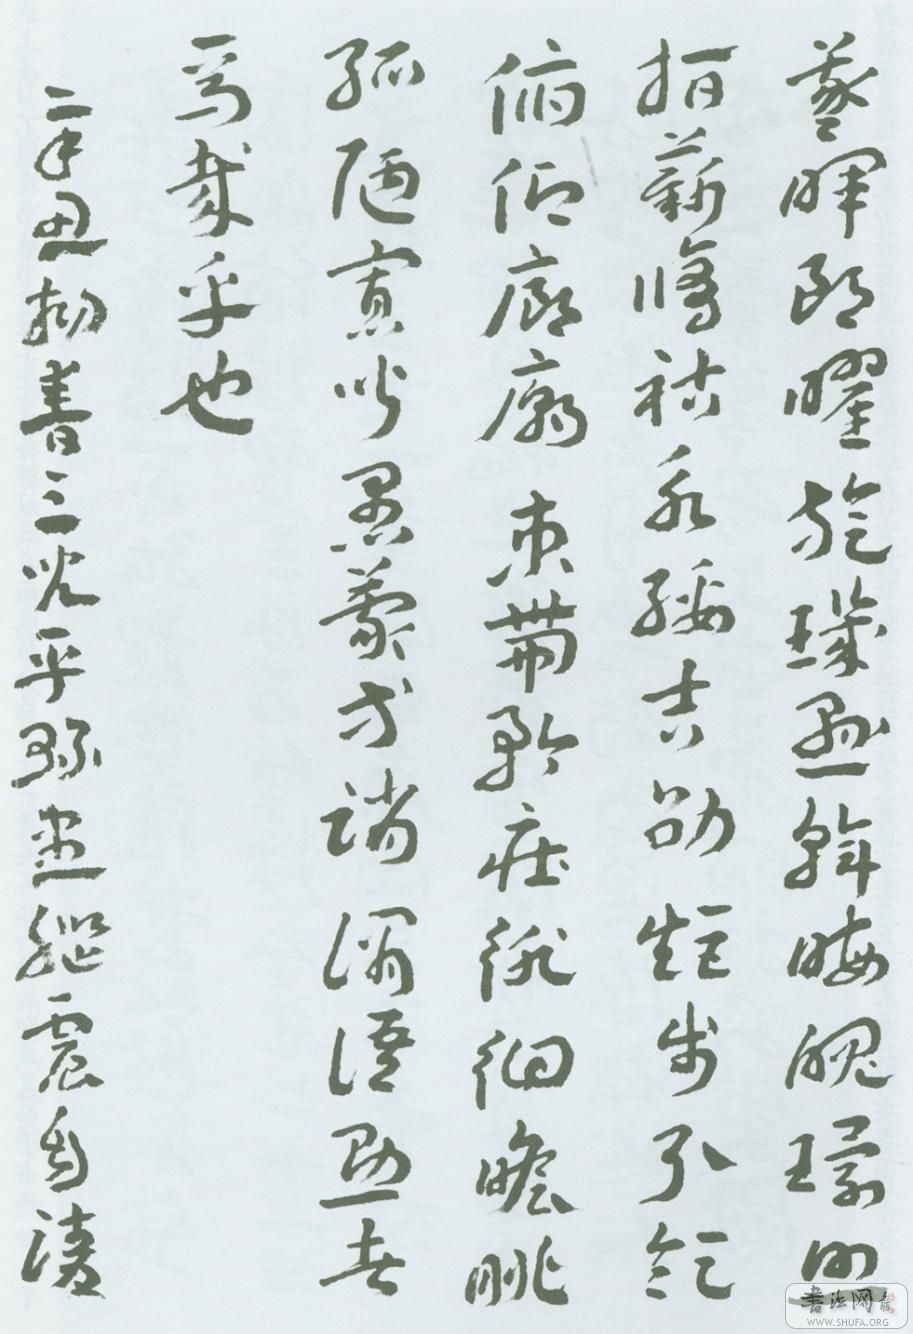 羲暉朗曜旋璣懸斡晦魄環照
指薪脩祜永綏吉劭矩步引領
俯仰廊廟束帶矜莊徘徊瞻眺
孤陋寡聞愚蒙等誚謂語助者
焉哉乎也
辛丑書三
書法网
WWW.SHUFA.ORG